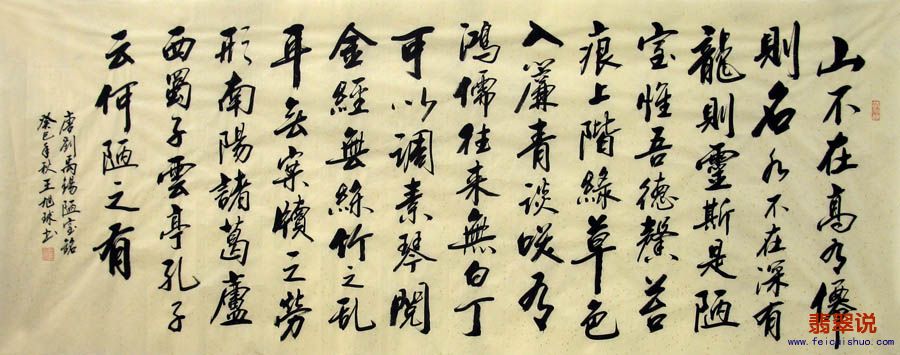 山不在高有僊
則名水不在深有
龍則靈斯是陋
室惟吾德馨苔
痕上階綠草色
入簾青談咲有
鴻儒往來無白丁
可以調素琴閱
金經無絲竹之亂
耳无案牘之勞
形南陽諸葛廬
西蜀子雲亭孔子
云何陋之有
唐劉禹錫陋室銘
癸巳年秋王旭球书
翡翠说
www.feicuishuo.com